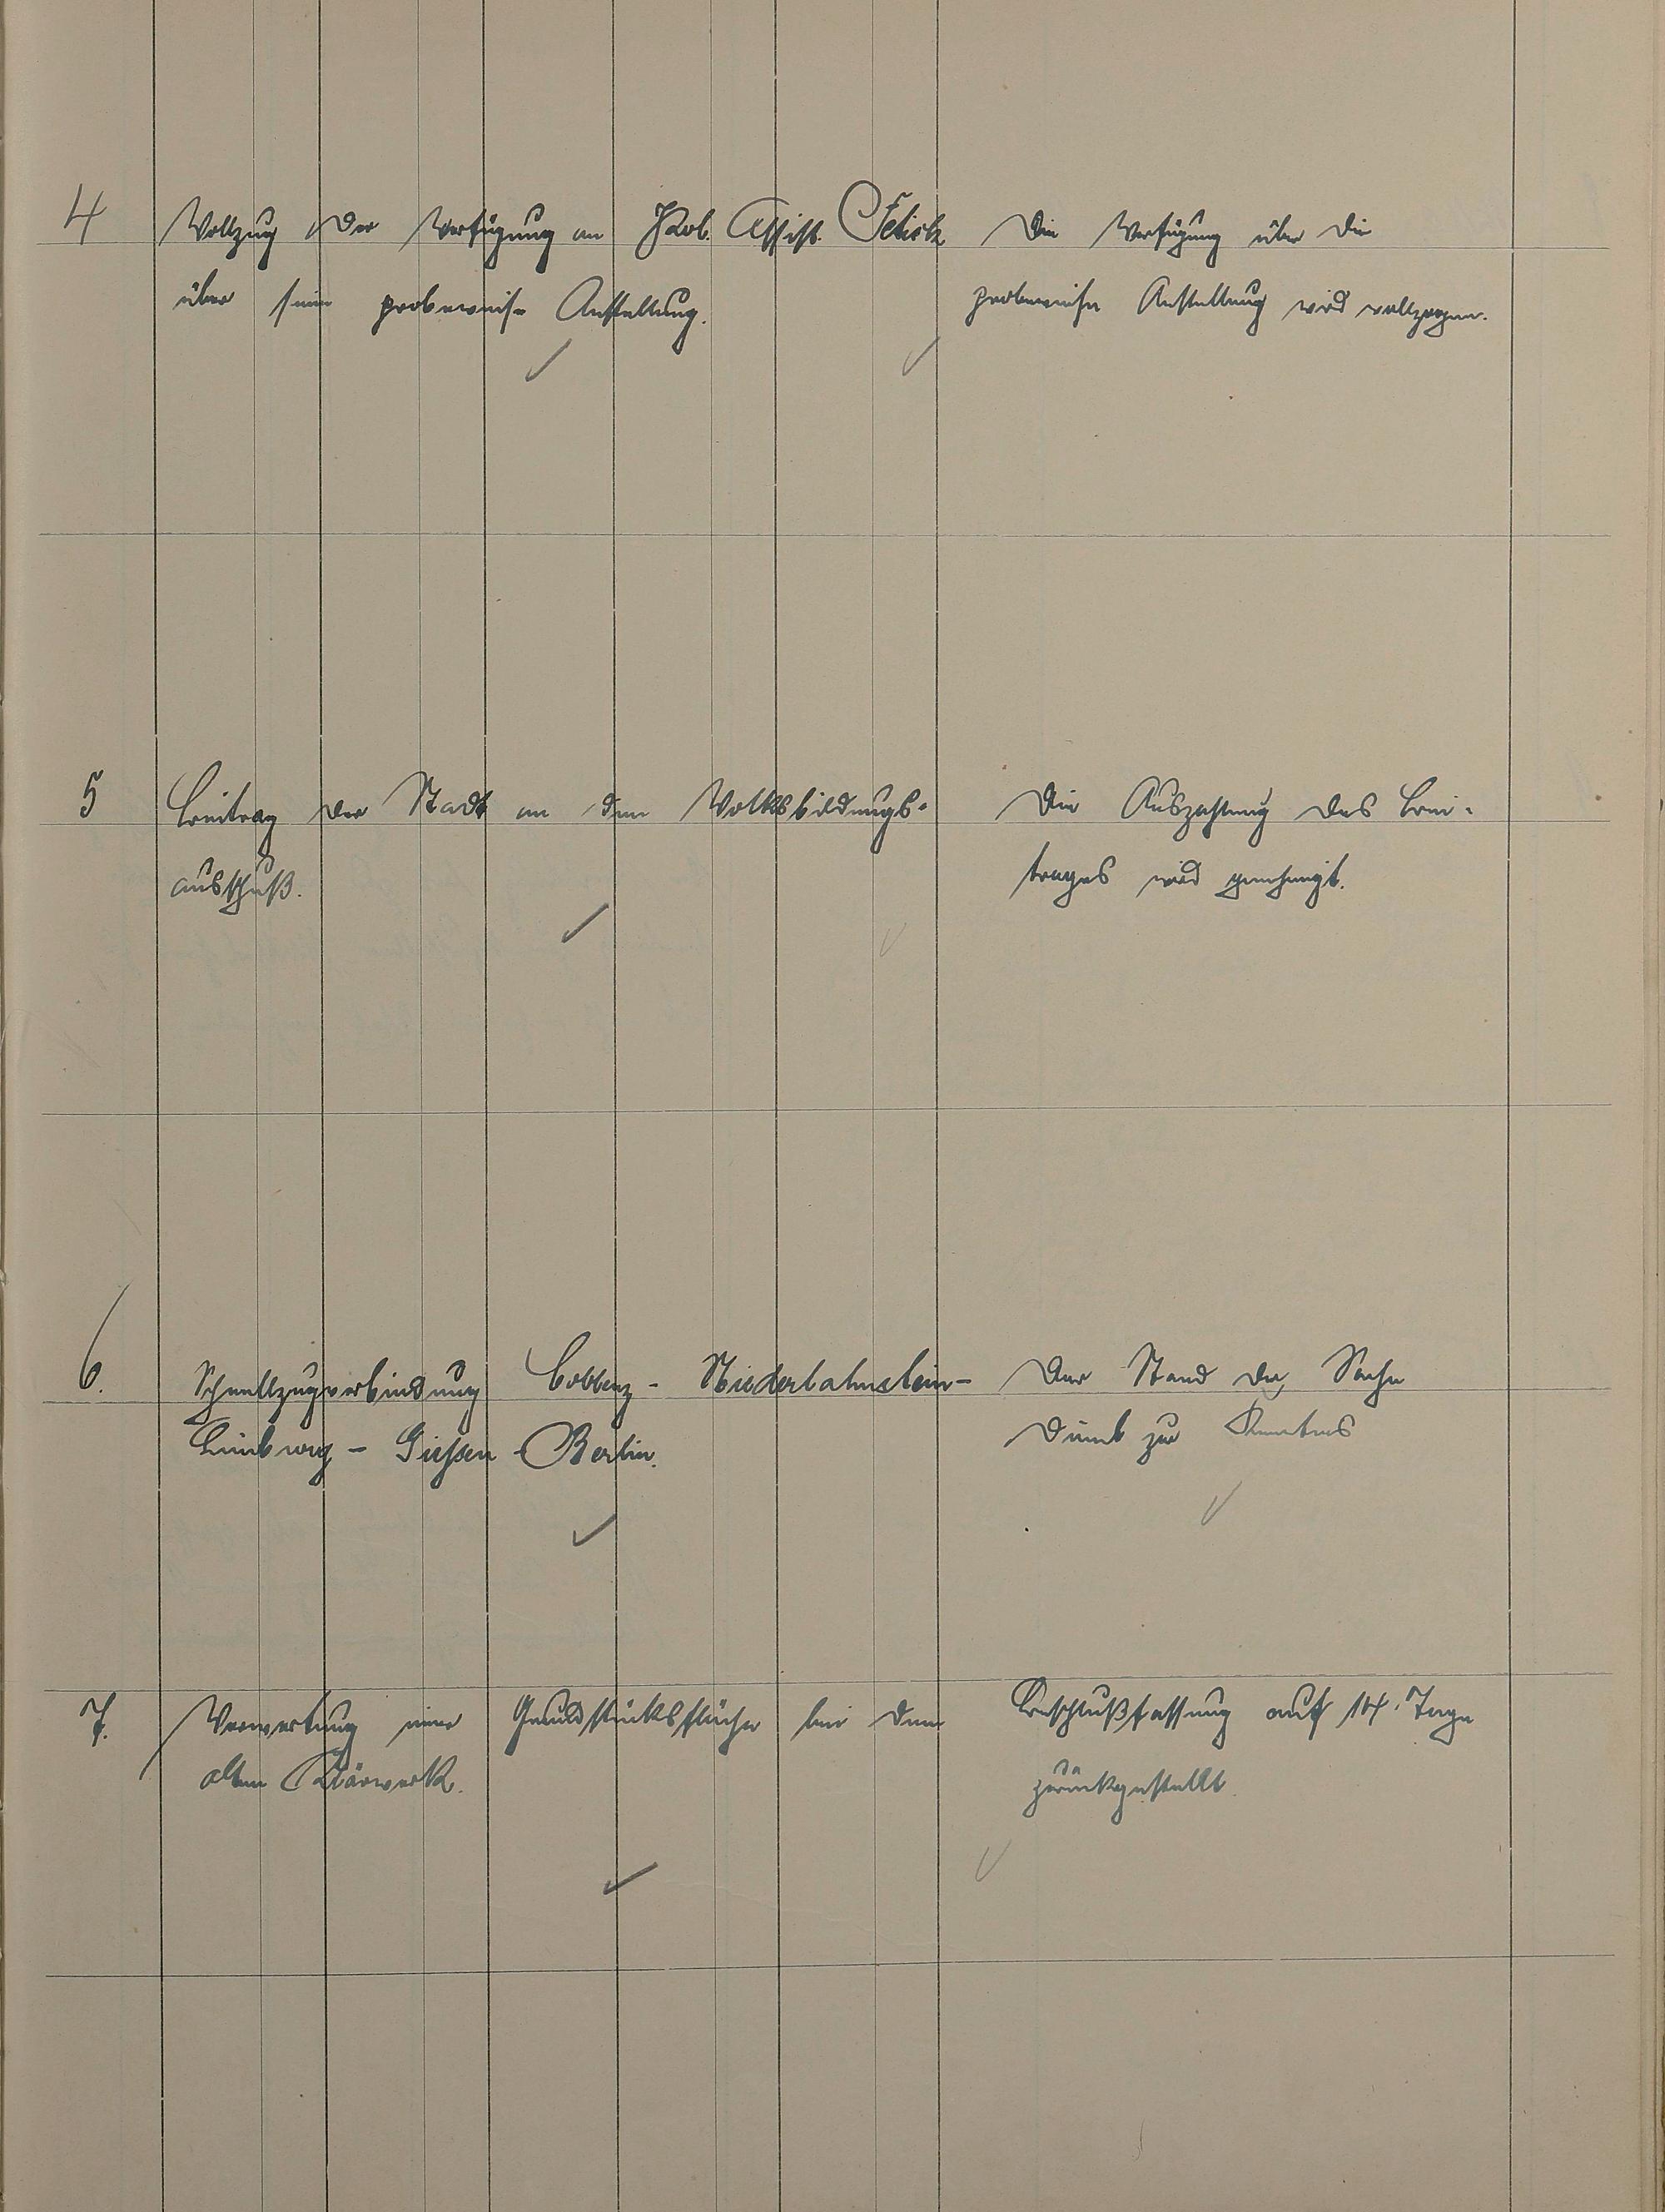 4 Vollzug der Verfügung an Assist.
über seine probeweise Anstellung.
Die Verfügung über die
probeweise Anstellung wird vollzogen.
5 Beitrag der Stadt an den Volksbildungs-
ausschuß.
Die Auszahlung des Bei-
trages wird genehmigt.
6. Schnellzugverbindung Coblenz - Niederlahnstein -
Limburg - Giessen - Berlin.
Der Stand der Sache
dient zur Kenntnis
7. Verwertung einer Grundstücksfläche bei dem
alten Klärwerk.
Beschlußfassung auf 14 Tage
zurückgestellt.